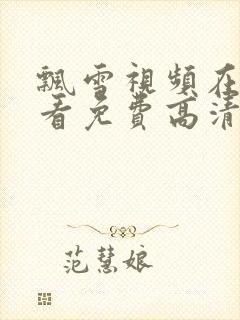 飄雪視頻在
看免費高清
范慧娘